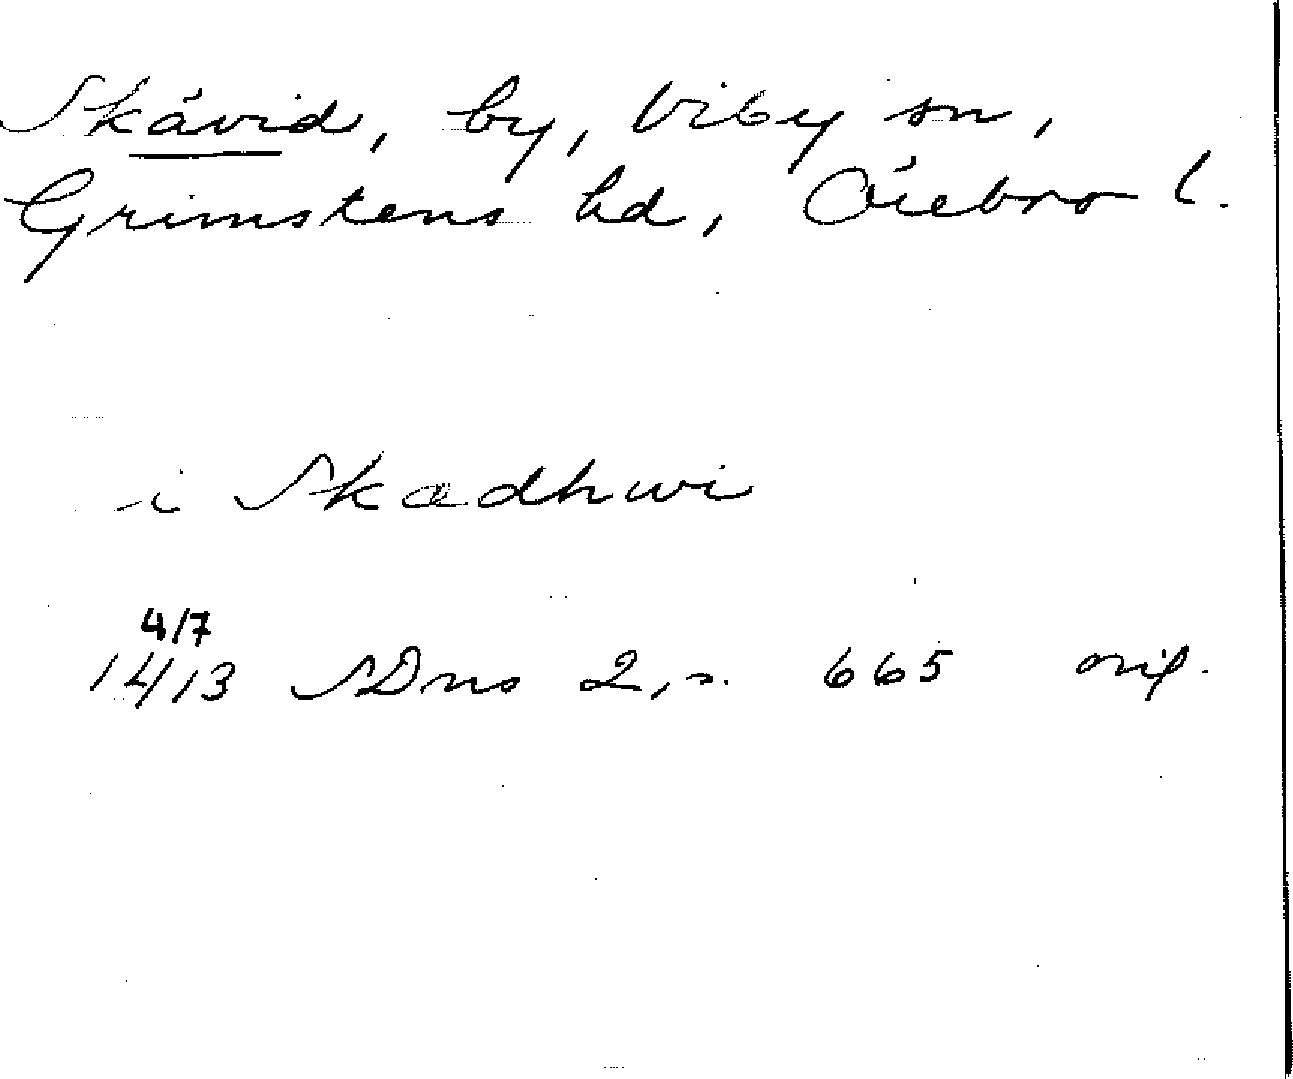 Skävid, by, Viby sn,
Grimstens hd, Örebro l.
i Skadhwi
4/7
1413 SDns 2, s. 665 orig.